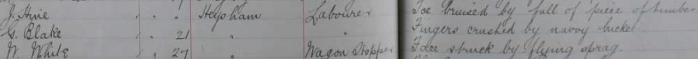 J. Hine " " Heysham Labourer Toe bruised by fall of piece of timber
G. Blake " 21 " " Fingers crushed by navvy bucket
W. White " 27 " Wagon Stopper Face struck by flying sprag.